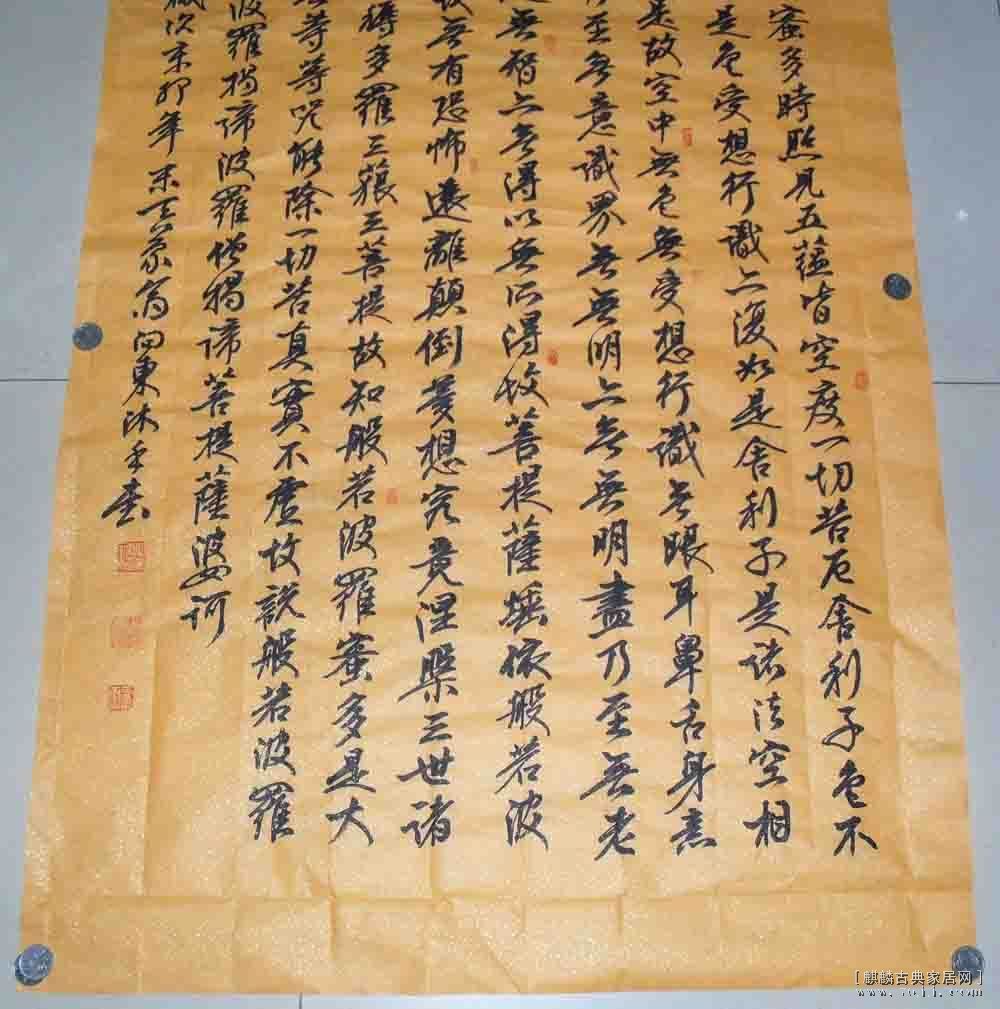 蜜多時照見五蘊皆空度一切苦厄舍利子色不
是色受想行識亦復如是舍利子是諸法空相
是故空中無色無受想行識無眼耳鼻舌身意
乃至無意識界無無明亦無無明盡乃至無老
無智亦無得以無所得故菩提薩埵依般若波
故無有恐怖遠離顛倒夢想究竟涅槃三世諸
耨多羅三藐三菩提故知般若波羅蜜多是大
無等等咒能除一切苦真實不虛故說般若波羅
波羅揭諦波羅僧揭諦菩提薩婆訶
歲次 卯年 向東沐手書
[麒麟古典家居网]